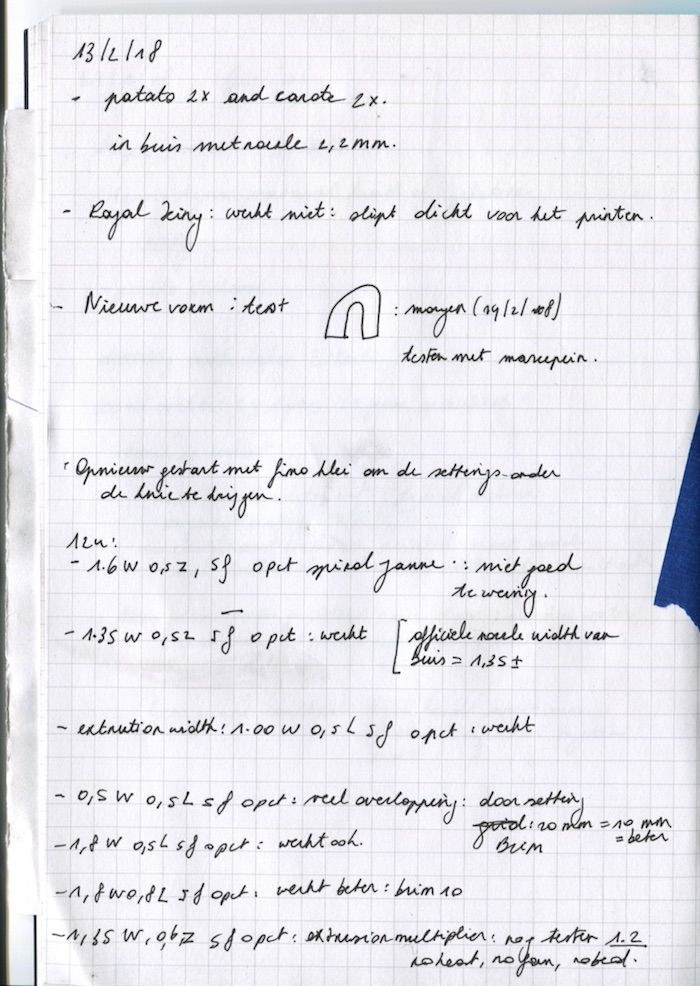 13/2/18
- patato 2x and carote 2x.
in buis met nozzle 2,2mm.
- Royal Icing: werkt niet: slipt dicht voor het printen.
- Nieuwe vorm: test : morgen (14/2/18)
testen met marsepein.
Opnieuw gestart met fimo klei om de settings onder
de knie te krijgen.
12u:
- 1.6W 0,5Z, 5f 0 pct spiral Janne : niet goed
te weinig.
- 1.35W 0,5Z 5f 0 pct : werkt [officiele nozzle width van
buis = 1,35±
- extrution width: 1.00 W 0,5L 5f 0 pct : werkt
- 0,5W 0,5L 5f 0pct: veel overlopping: door setting
grid: 20 mm = 10 mm
BRIM = beter
- 1,8W 0,5L 5f 0pct: werkt ook.
- 1,8W 0,8L 5f 0pct: werkt beter: brim 10
- 1,35W, 0,6Z 5f 0pct: extrusion multiplier: nog testen 1.2
no heat, no fan, no bed.